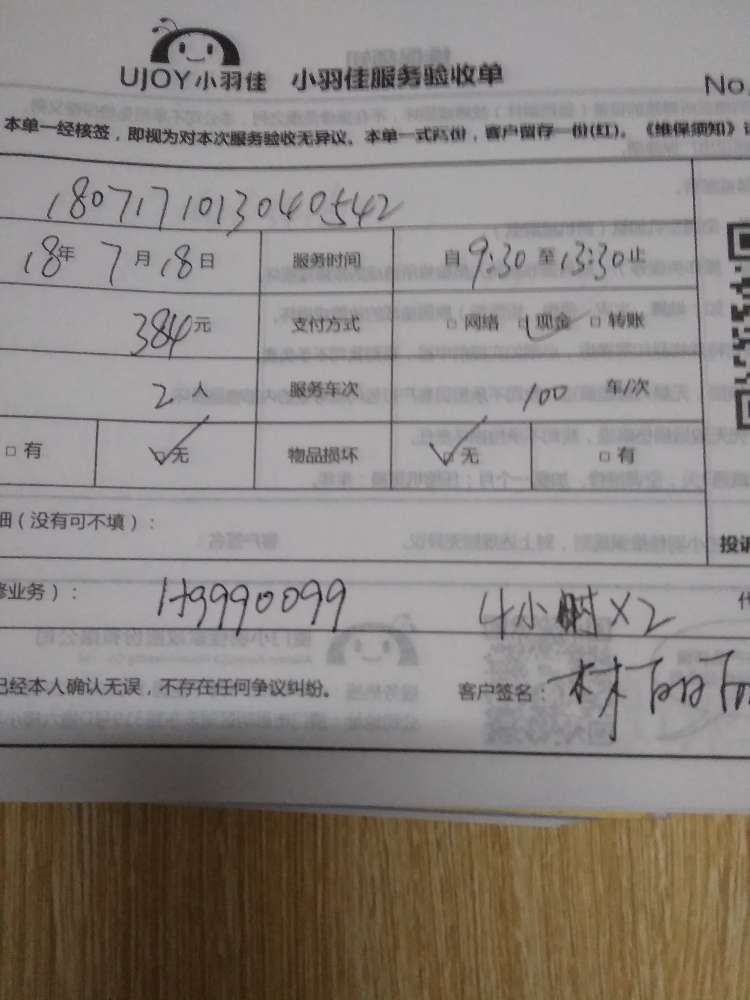 UJOY小羽佳 小羽佳服务验收单
No.
本单一经核签，即视为对本次服务验收无异议。本单一式两份，客户留存一份(红)。《维保须知》
1807171013040542
18年 7月18日 服务时间 自9:30至13:30止
384元 支付方式 □网络 □现金 □转账
2人 服务车次 100 车/次
□有 □无 物品损坏 □无 □有
细（没有可不填）：
投诉
修业务）： 1+9990099 4小时×2
已经本人确认无误，不存在任何争议纠纷。 客户签名：林丽丽